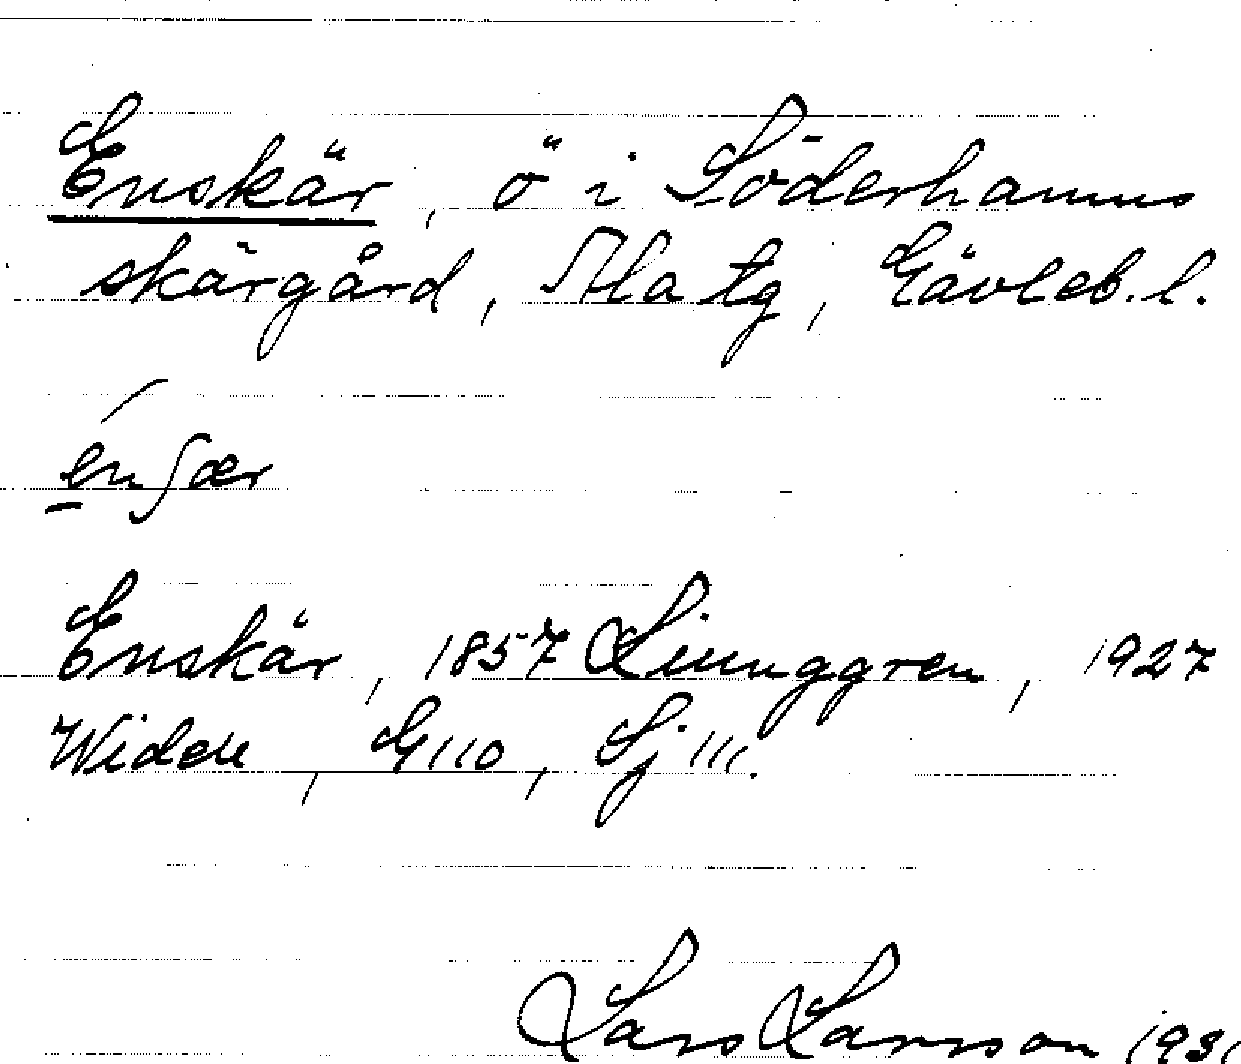 Enskär, ö i Söderhamns
skärgård, Ala tg, Gävleb. l.
énʃær
Enskär, 1857 Ljunggren, 1927
Widén, G110, Sj 111.
Lars Larsson